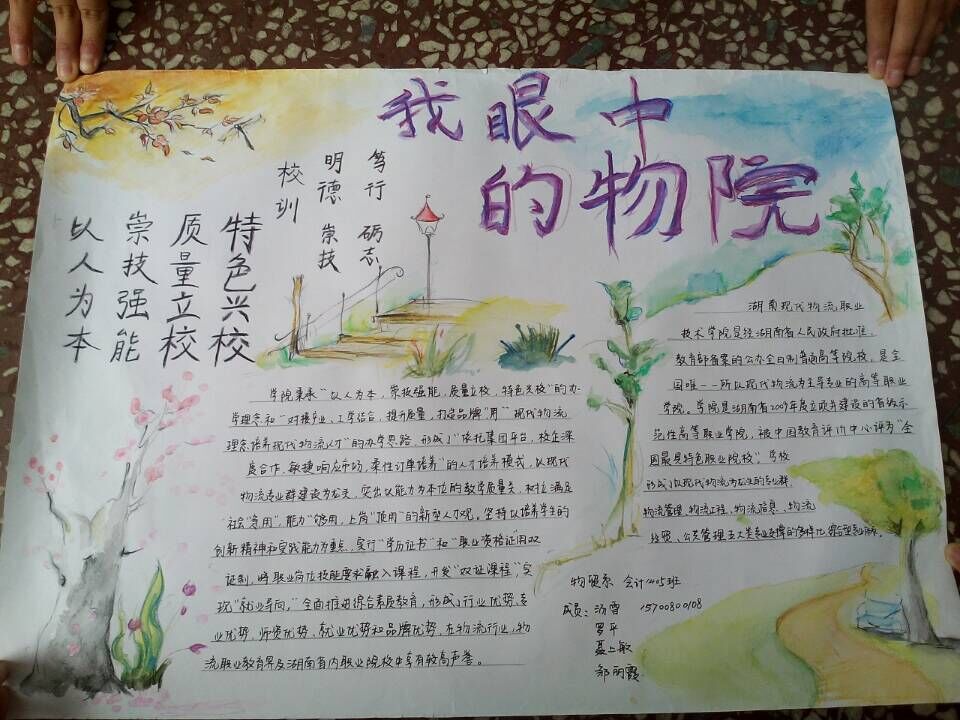 我眼中
的物院
校训
明德 崇技
笃行 砺志
特色兴校
质量立校
崇技强能
以人为本
学院秉承“以人为本，崇技强能，质量立校，特色兴校”的办
学理念和“对接产业、工学结合、提升质量、打造品牌”用“现代物流
理念培养现代物流人才”的办学思路，形成了“依托集团平台，校企深
度合作，敏捷响应市场，柔性订单培养”的人才培养模式，以现代
物流专业群建设为龙头，突出以能力为本位的教学质量关，
社会“急用”，能力“够用”，上岗“顶用”的新型人才观，坚持以培养学生的
创新精神和实践能力为重点，实行“学历证书”和“职业资格证用双
证制，将职业岗位技能要求融入课程，开发“双证课程”，实
现“就业导向，”全面推进综合素质教育，形成了行业优势、专
业优势、师资优势、就业优势和品牌优势，在物流行业，物
流职业教育界及湖南省内职业院校中享有较高声誉。
湖南现代物流职业
技术学院是经湖南省人民政府批准，
教育部备案的公办全日制普通高等院校，是全
国唯一一所以现代物流为主导专业的高等职业
学院。学院是湖南省2009年度立项并建设的省级示
范性高等职业学院，被中国教育评价中心评为“全
国最具特色职业院校”。学校
形成了以现代物流为龙头的专业群，
物流管理、物流工程、物流信息、物流
经贸、公共管理五大类专业支撑的多样化
物贸系 会计1405班
成员：汤雪 15700800108
罗平
聂上敏
邹丽霞